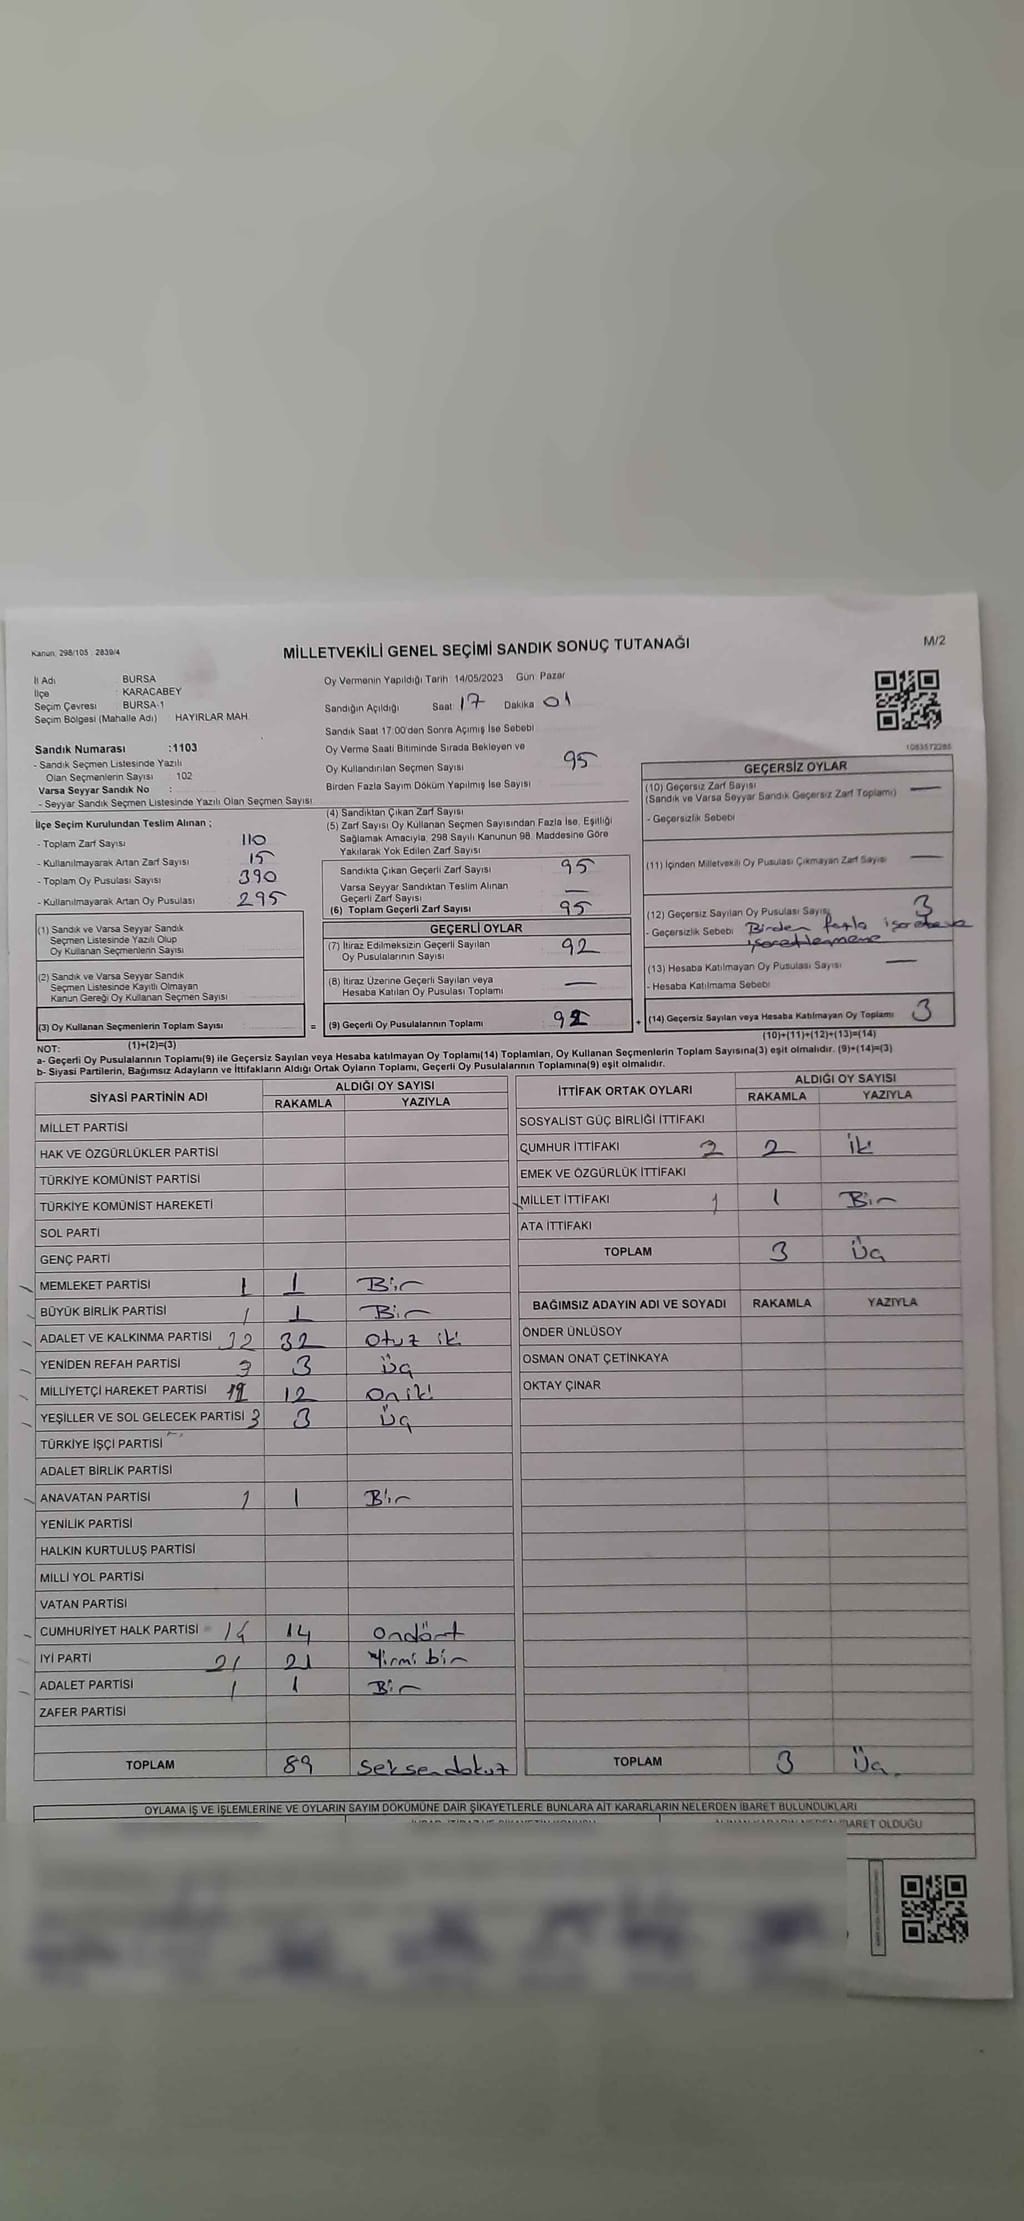 Kanun: 298/105 : 2839/4
MİLLETVEKİLİ GENEL SEÇİMİ SANDIK SONUÇ TUTANAĞI
M/2
İl Adı BURSA
İlçe : KARACABEY
Seçim Çevresi : BURSA-1
Seçim Bölgesi (Mahalle Adı) HAYIRLAR MAH.
Oy Vermenin Yapıldığı Tarih 14/05/2023 Gün Pazar
Sandığın Açıldığı Saat 17 Dakika 01
Sandık Saat 17:00'den Sonra Açımış İse Sebebi
Oy Verme Saati Bitiminde Sırada Bekleyen ve
Oy Kullandırılan Seçmen Sayısı 95
Birden Fazla Sayım Döküm Yapılmış İse Sayısı
1083572285
Sandık Numarası :1103
- Sandık Seçmen Listesinde Yazılı
Olan Seçmenlerin Sayısı : 102
Varsa Seyyar Sandık No :
- Seyyar Sandık Seçmen Listesinde Yazılı Olan Seçmen Sayısı
İlçe Seçim Kurulundan Teslim Alınan ;
- Toplam Zarf Sayısı 110
- Kullanılmayarak Artan Zarf Sayısı 15
- Toplam Oy Pusulası Sayısı 390
- Kullanılmayarak Artan Oy Pusulası 295
(1) Sandık ve Varsa Seyyar Sandık
Seçmen Listesinde Yazılı Olup
Oy Kullanan Seçmenlerin Sayısı
(2) Sandık ve Varsa Seyyar Sandık
Seçmen Listesinde Kayıtlı Olmayan
Kanun Gereği Oy Kullanan Seçmen Sayısı
(3) Oy Kullanan Seçmenlerin Toplam Sayısı =
(1)+(2)=(3)
(4) Sandıktan Çıkan Zarf Sayısı
(5) Zarf Sayısı Oy Kullanan Seçmen Sayısından Fazla İse, Eşitliği
Sağlamak Amacıyla, 298 Sayılı Kanunun 98. Maddesine Göre
Yakılarak Yok Edilen Zarf Sayısı
Sandıkta Çıkan Geçerli Zarf Sayısı 95
Varsa Seyyar Sandıktan Teslim Alınan
Geçerli Zarf Sayısı —
(6) Toplam Geçerli Zarf Sayısı 95
GEÇERLİ OYLAR
(7) İtiraz Edilmeksizin Geçerli Sayılan
Oy Pusulalarının Sayısı 92
(8) İtiraz Üzerine Geçerli Sayılan veya
Hesaba Katılan Oy Pusulası Toplamı —
(9) Geçerli Oy Pusulalarının Toplamı 92 +
GEÇERSİZ OYLAR
(10) Geçersiz Zarf Sayısı
(Sandık ve Varsa Seyyar Sandık Geçersiz Zarf Toplamı) —
- Geçersizlik Sebebi
(11) İçinden Milletvekili Oy Pusulası Çıkmayan Zarf Sayısı —
(12) Geçersiz Sayılan Oy Pusulası Sayısı 3
- Geçersizlik Sebebi Birden fazla
(13) Hesaba Katılmayan Oy Pusulası Sayısı —
- Hesaba Katılmama Sebebi
(14) Geçersiz Sayılan veya Hesaba Katılmayan Oy Toplamı 3
(10)+(11)+(12)+(13)=(14)
NOT:
a- Geçerli Oy Pusulalarının Toplamı(9) ile Geçersiz Sayılan veya Hesaba katılmayan Oy Toplamı(14) Toplamları, Oy Kullanan Seçmenlerin Toplam Sayısına(3) eşit olmalıdır. (9)+(14)=(3)
b- Siyasi Partilerin, Bağımsız Adayların ve İttifakların Aldığı Ortak Oyların Toplamı, Geçerli Oy Pusulalarının Toplamına(9) eşit olmalıdır.
SİYASİ PARTİNİN ADI
ALDIĞI OY SAYISI
RAKAMLA YAZIYLA
MİLLET PARTİSİ
HAK VE ÖZGÜRLÜKLER PARTİSİ
TÜRKİYE KOMÜNİST PARTİSİ
TÜRKİYE KOMÜNİST HAREKETİ
SOL PARTİ
GENÇ PARTİ
MEMLEKET PARTİSİ 1 1 Bir
BÜYÜK BİRLİK PARTİSİ 1 1 Bir
ADALET VE KALKINMA PARTİSİ 32 32 Otuz iki
YENİDEN REFAH PARTİSİ 3 3 Üç
MİLLİYETÇİ HAREKET PARTİSİ 12 12 Oniki
YEŞİLLER VE SOL GELECEK PARTİSİ 3 3 Üç
TÜRKİYE İŞÇİ PARTİSİ
ADALET BİRLİK PARTİSİ
ANAVATAN PARTİSİ 1 1 Bir
YENİLİK PARTİSİ
HALKIN KURTULUŞ PARTİSİ
MİLLİ YOL PARTİSİ
VATAN PARTİSİ
CUMHURİYET HALK PARTİSİ 14 14 Ondört
İYİ PARTİ 21 21 Yirmi bir
ADALET PARTİSİ 1 1 Bir
ZAFER PARTİSİ
TOPLAM 89 Seksendokuz
İTTİFAK ORTAK OYLARI
ALDIĞI OY SAYISI
RAKAMLA YAZIYLA
SOSYALİST GÜÇ BİRLİĞİ İTTİFAKI
CUMHUR İTTİFAKI 2 2 iki
EMEK VE ÖZGÜRLÜK İTTİFAKI
MİLLET İTTİFAKI 1 1 Bir
ATA İTTİFAKI
TOPLAM 3 Üç
BAĞIMSIZ ADAYIN ADI VE SOYADI RAKAMLA YAZIYLA
ÖNDER ÜNLÜSOY
OSMAN ONAT ÇETİNKAYA
OKTAY ÇINAR
TOPLAM 3 Üç.
OYLAMA İŞ VE İŞLEMLERİNE VE OYLARIN SAYIM DÖKÜMÜNE DAİR ŞİKAYETLERLE BUNLARA AİT KARARLARIN NELERDEN İBARET BULUNDUKLARI
İBARET OLDUĞU